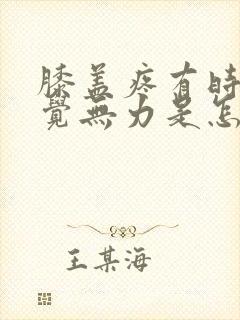 膝盖疼有时
覺無力是怎
王某海